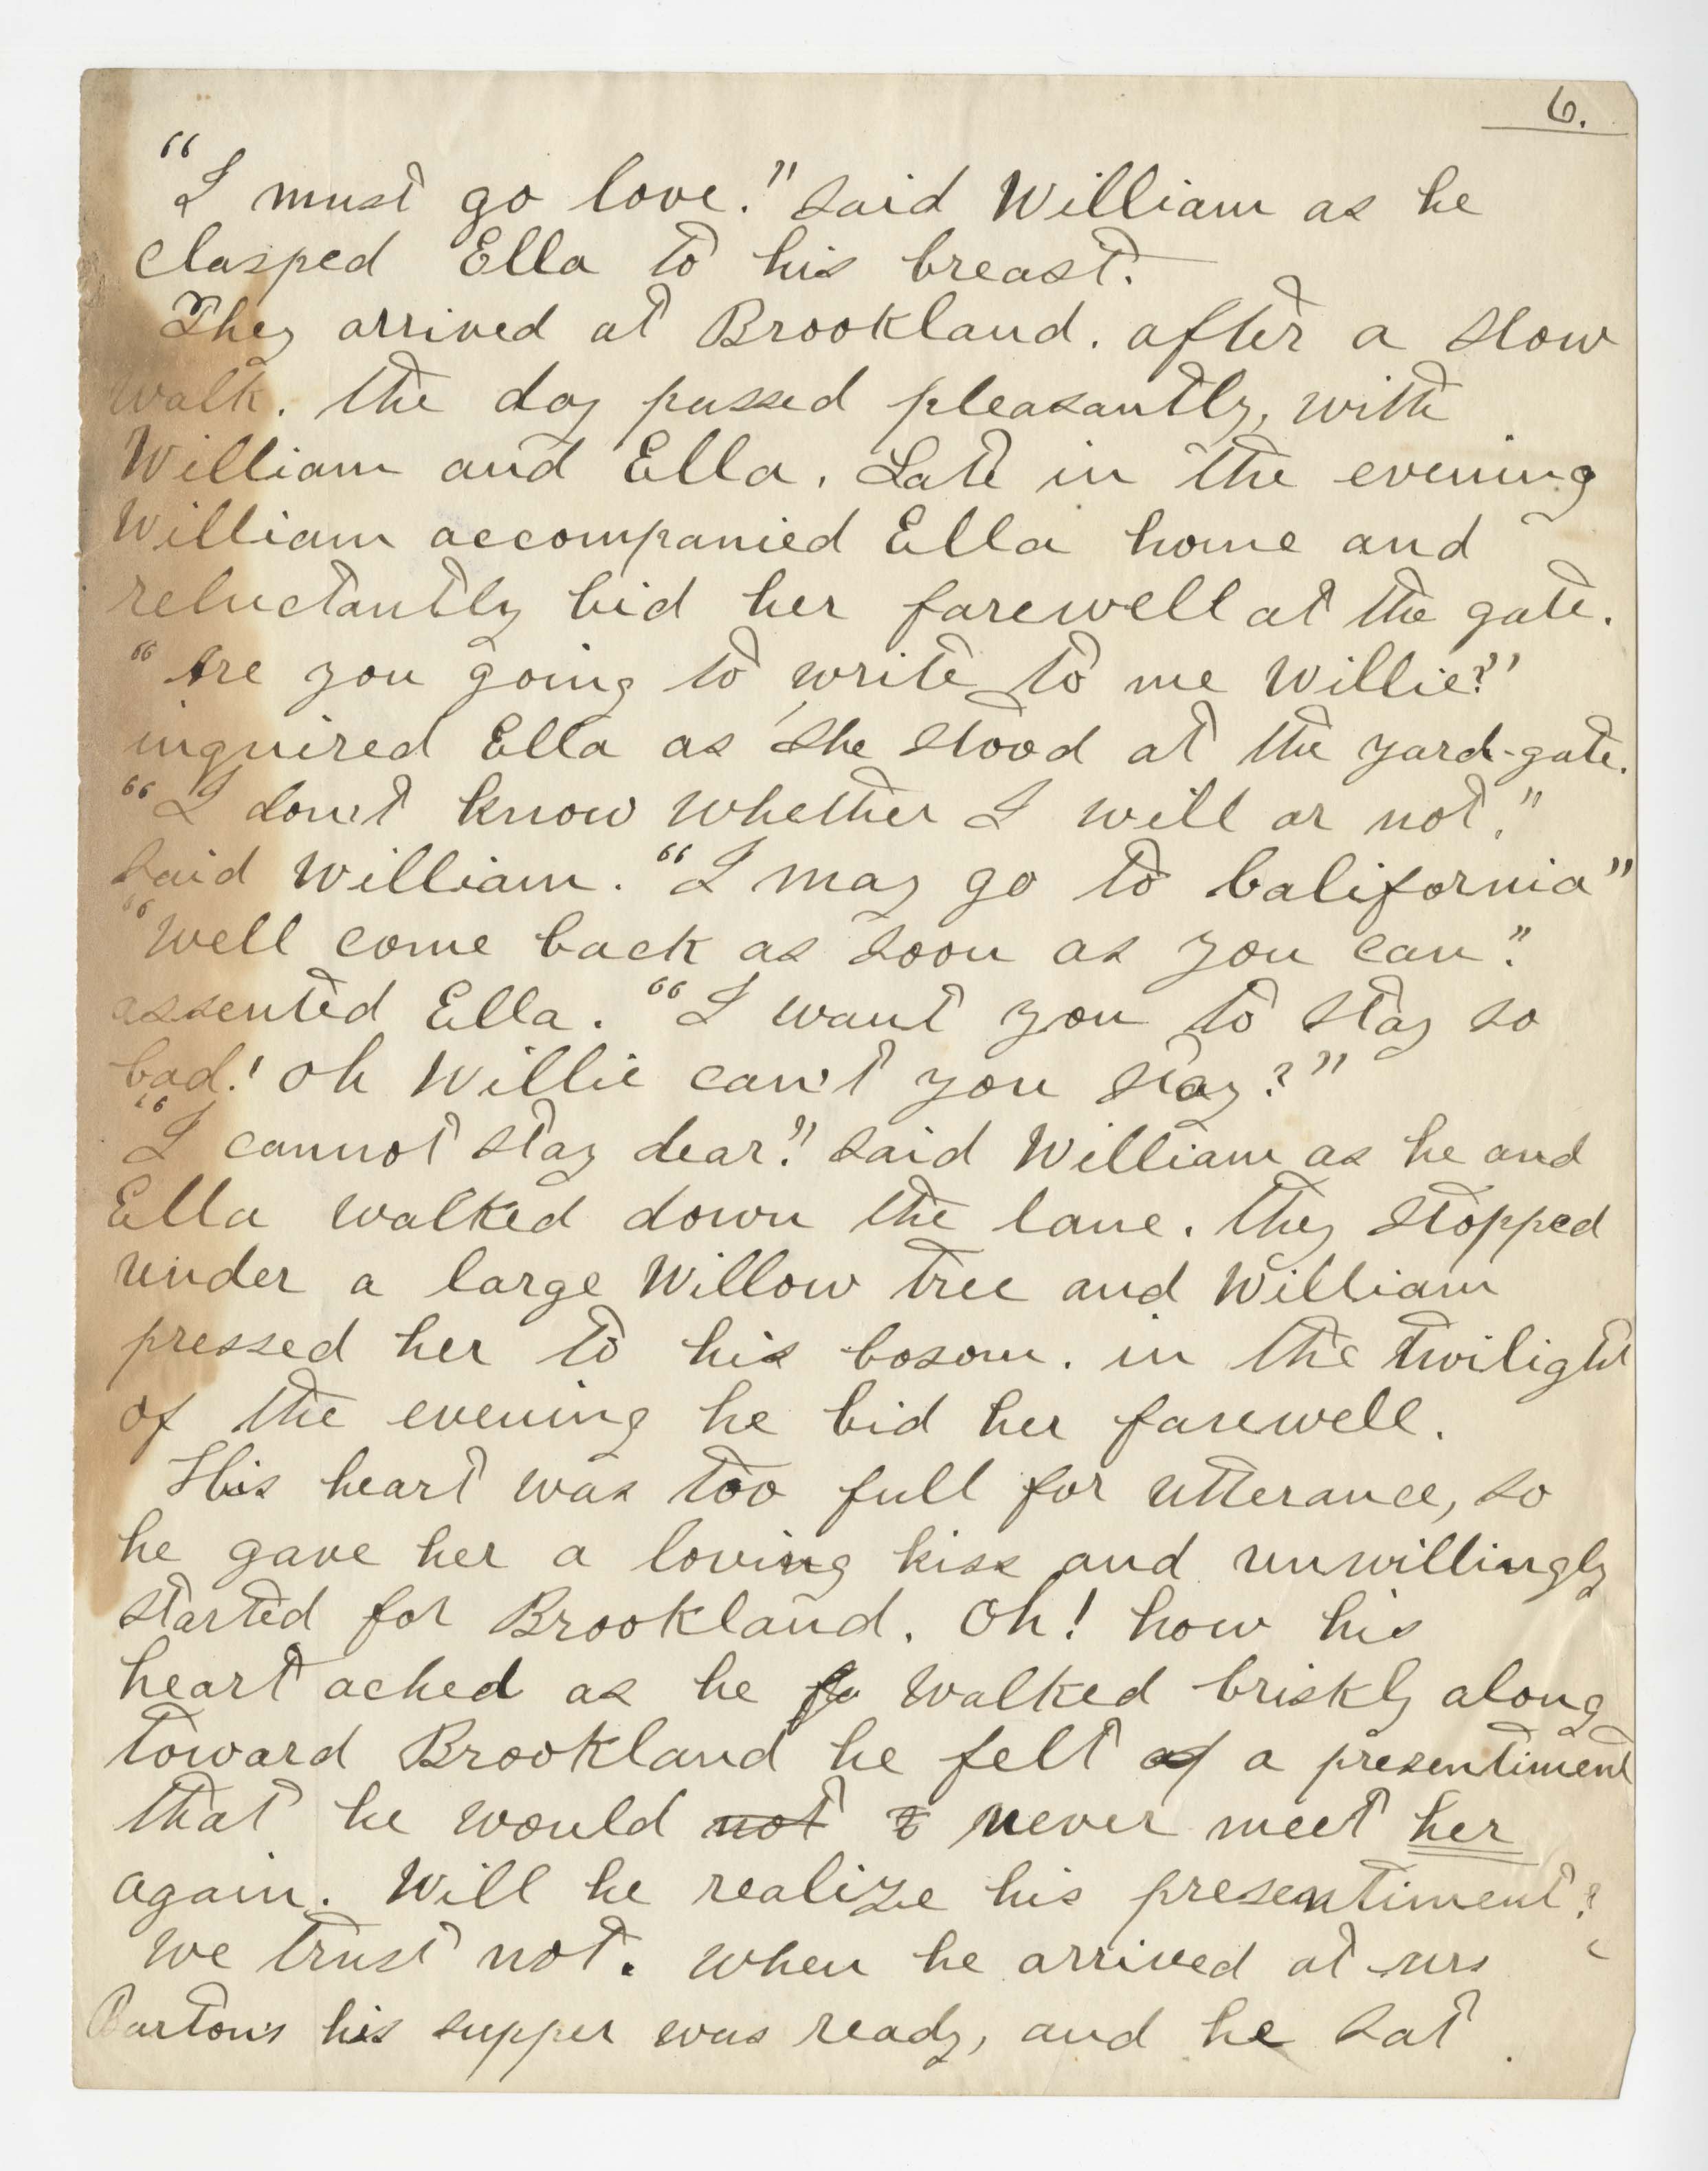 6.
"I must go love." said William as he
clasped Ella to his breast.
They arrived at Brookland. after a slow
walk. the day passed pleasantly, with
William and Ella. Late in the evening
William accompanied Ella home and
reluctantly bid her farewell at the gate.
"Are you going to write to me Willie?"
inquired Ella as she stood at the yard-gate.
"I don't know whether I will or not."
said William. "I may go to California"
"Well come back as soon as you can."
assented Ella. "I want you to stay so
bad! oh Willie can't you stay?"
"I cannot stay dear." said William as he and
Ella walked down the lane. they stopped
under a large Willow tree and William
pressed her to his bosom. in the twilight
of the evening he bid her farewell.
His heart was too full for utterance, so
he gave her a loving kiss and unwillingly
started for Brookland. Oh! how his
heart ached as he walked briskly along
toward Brookland he felt of a presentiment
that he would not never meet her
again. Will he realize his presentiment?
We trust not. when he arrived at mrs
Barton's his supper was ready, and he sat